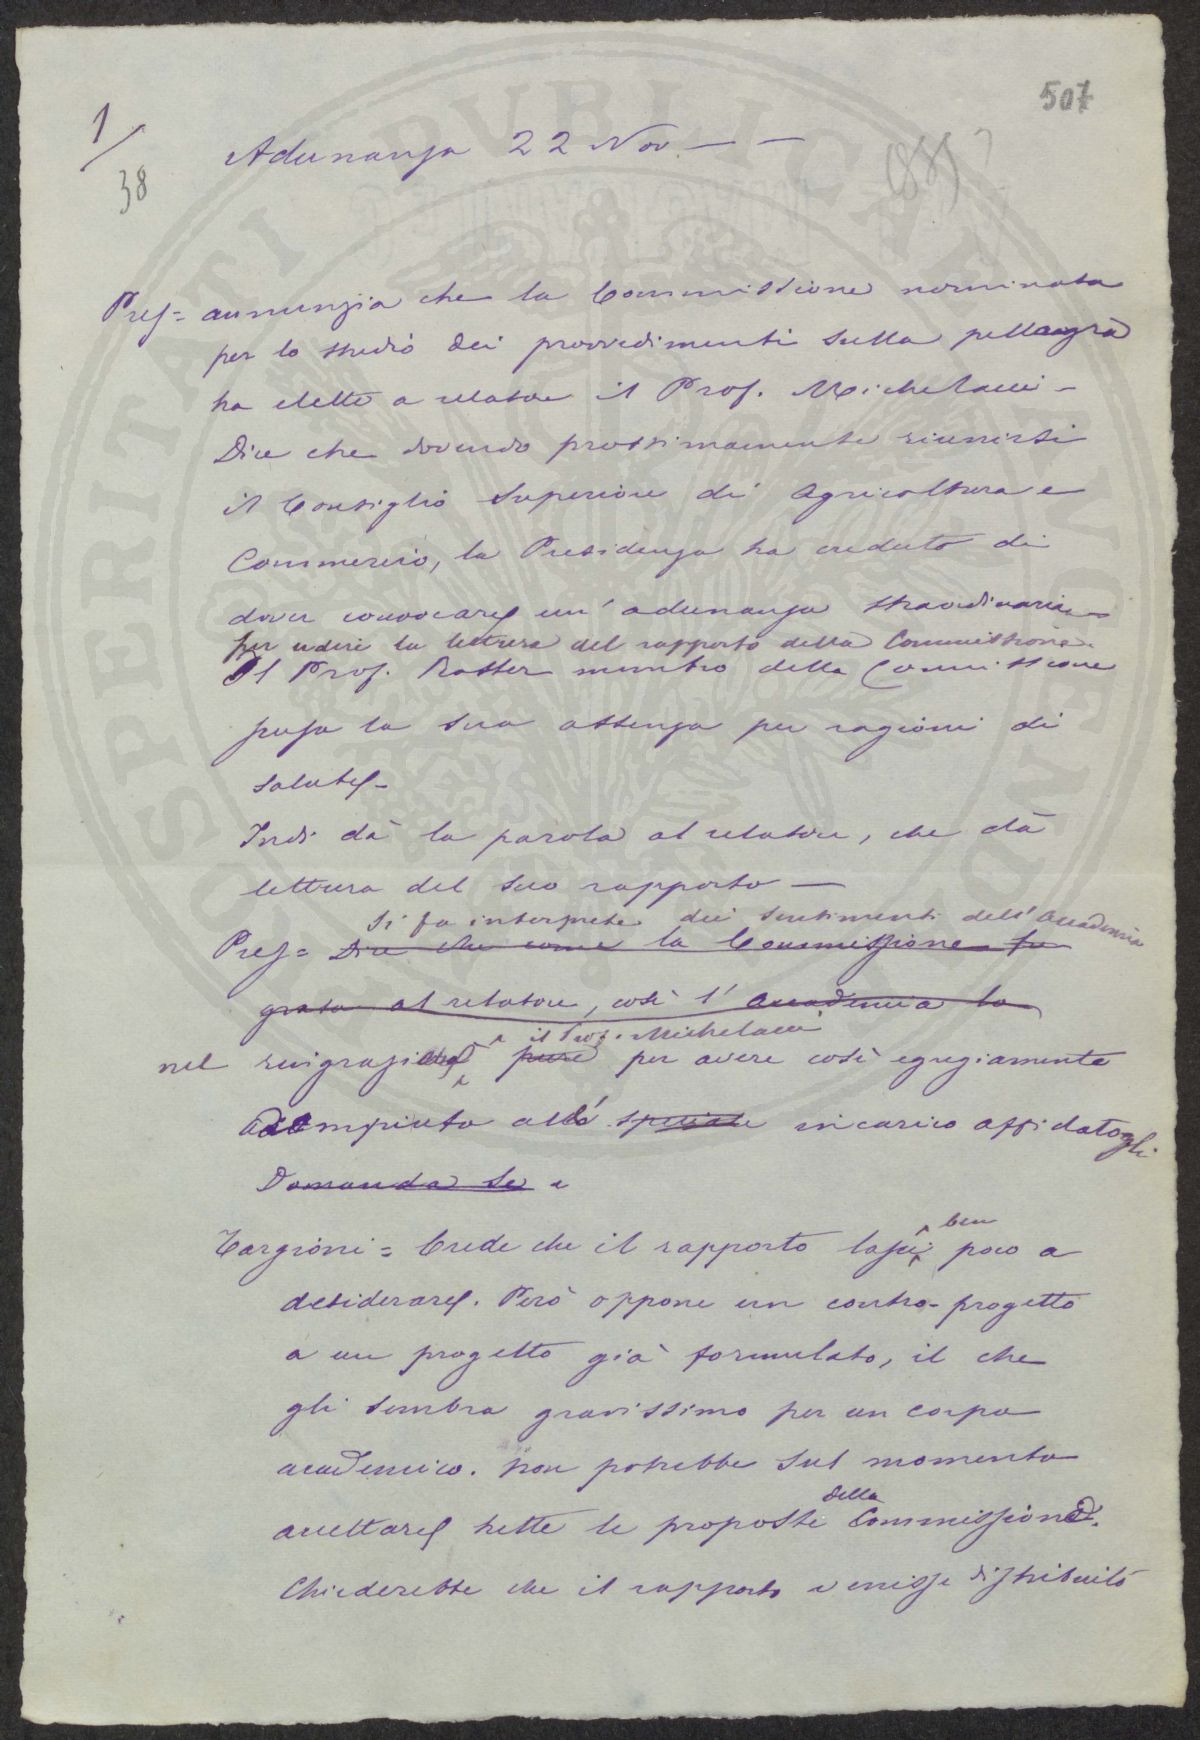 507
1/38
Adunanza 22 Nov — —
1885?
Pres = annunzia che la Commissione nominata
per lo studio dei provvedimenti sulla pellagra
ha eletto a relatore il Prof. Michelacci -
Dice che dovendo prossimamente riunirsi
il Consiglio Superiore di Agricoltura e
Commercio, la Presidenza ha creduto di
dover convocare un' adunanza straordinaria
per udire la lettura del rapporto della Commissione.
Il Prof. Roster membro della Commissione
scusa la sua assenza per ragioni di
salute -
Indi dà la parola al relatore, che dà
lettura del suo rapporto —
si fa interprete dei sentimenti dell' Accademia
Pres = Dice che come la Commissione fu
grata al relatore, così l' Accademia lo
il Prof. Michelacci
nel ringraziare pure per avere così egregiamente
adempiuto all' speciale incarico affidatogli
Domanda se
Targioni = Crede che il rapporto lasci ben poco a
desiderare. Però oppone un contro-progetto
a un progetto già formulato, il che
gli sembra gravissimo per un corpo
accademico. Non potrebbe sul momento
accettare tutte le proposte della Commissione.
Chiederebbe che il rapporto venisse distribuito